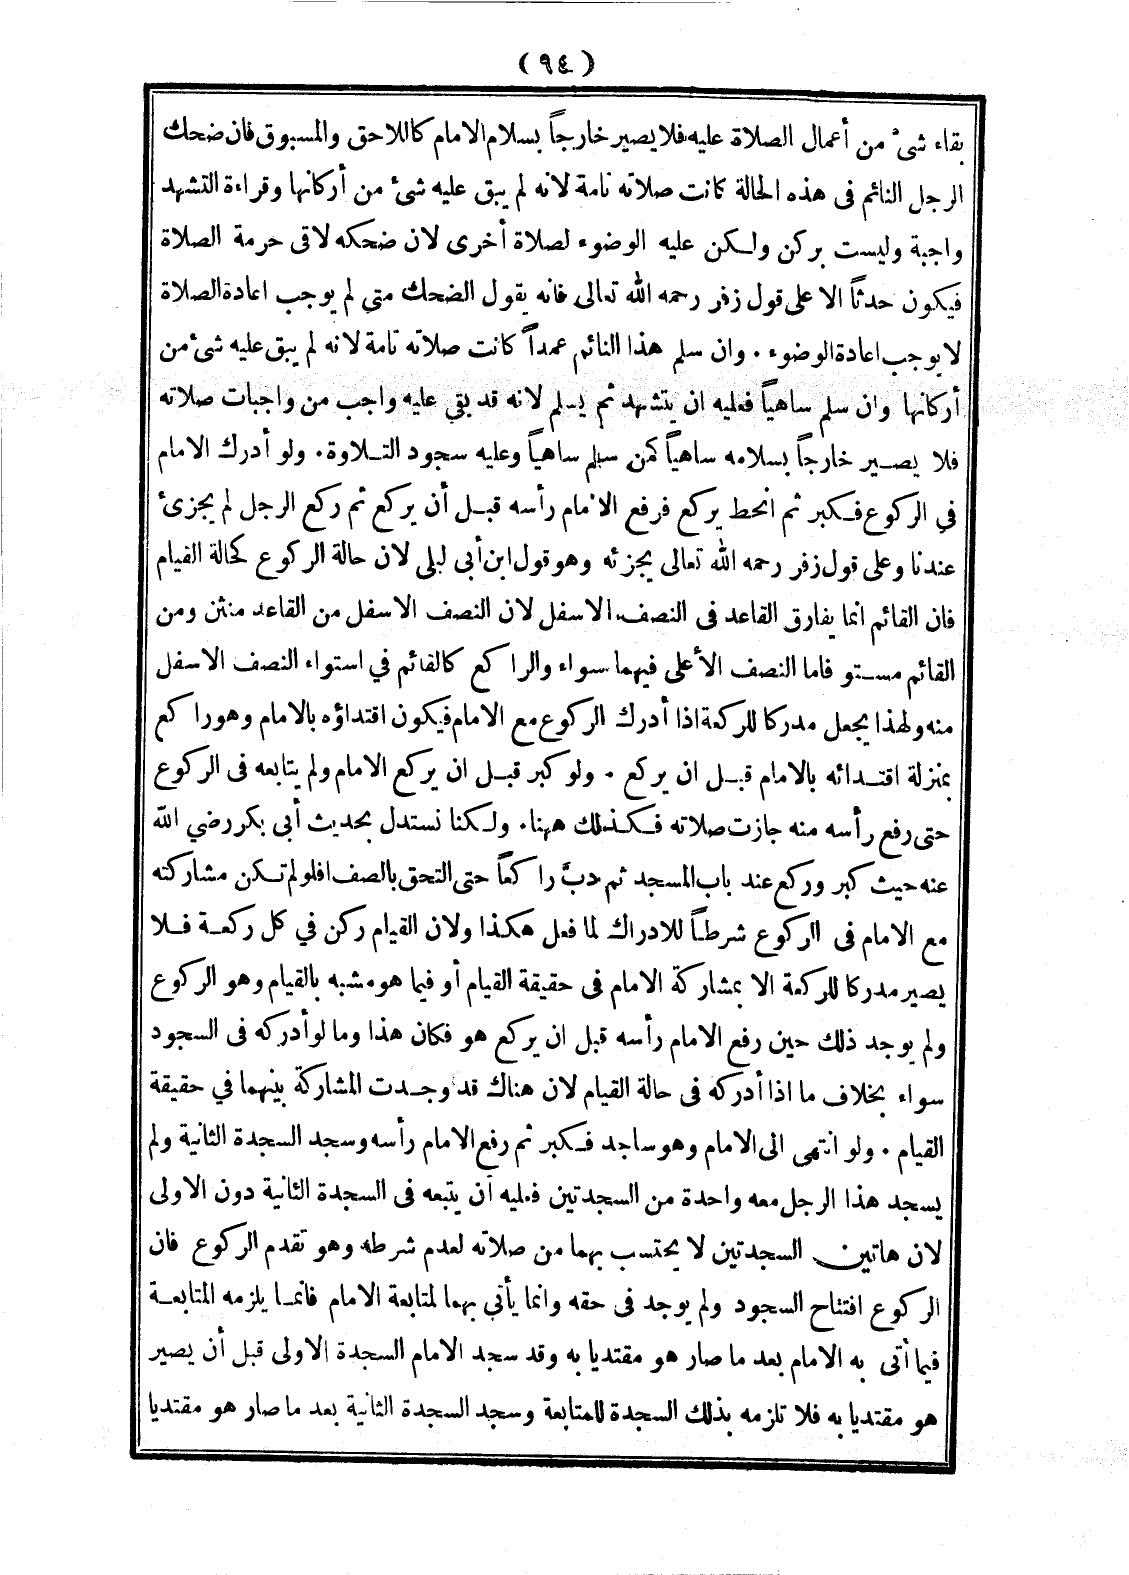 (٩٤)
بقاء شئ من أعمال الصلاة عليه فلا يصير خارجاً بسلام الامام كاللاحق والمسبوق فان ضحك
الرجل النائم فى هذه الحالة كانت صلاته تامة لانه لم يبق عليه شئ من أركانها وقراءة التشهد
واجبة وليست بركن ولكن عليه الوضوء لصلاة أخرى لان ضحكه لاقى حرمة الصلاة
فيكون حدثاً الا على قول زفر رحمه الله تعالى فانه يقول الضحك متى لم يوجب اعادة الصلاة
لا يوجب اعادة الوضوء . وان سلم هذا النائم عمداً كانت صلاته تامة لانه لم يبق عليه شئ من
أركانها وان سلم ساهياً فعليه ان يتشهد ثم يسلم لانه قد بقي عليه واجب من واجبات صلاته
فلا يصير خارجاً بسلامه ساهياً كمن سلم ساهياً وعليه سجود التلاوة . ولو أدرك الامام
في الركوع فكبر ثم انحط يركع فرفع الامام رأسه قبل أن يركع ثم ركع الرجل لم يجزئ
عندنا وعلى قول زفر رحمه الله تعالى يجزئه وهو قول ابن أبى ليلى لان حالة الركوع كحالة القيام
فان القائم انما يفارق القاعد فى النصف الاسفل لان النصف الاسفل من القاعد منثن ومن
القائم مستو فاما النصف الأعلى فيهما سواء والراكع كالقائم في استواء النصف الاسفل
منه ولهذا يجعل مدركا للركعة اذا أدرك الركوع مع الامام فيكون اقتداؤه بالامام وهو راكع
بمنزلة اقتدائه بالامام قبل ان يركع . ولو كبر قبل ان يركع الامام ولم يتابعه فى الركوع
حتى رفع رأسه منه جازت صلاته فكذلك ههنا . ولكنا نستدل بحديث أبى بكر رضي الله
عنه حيث كبر وركع عند باب المسجد ثم دبَّ راكعاً حتى التحق بالصف افلو لم تكن مشاركته
مع الامام فى الركوع شرطاً للادراك لما فعل هكذا ولان القيام ركن في كل ركعة فلا
يصير مدركا للركعة الا بمشاركة الامام فى حقيقة القيام أو فيما هو مشبه بالقيام وهو الركوع
ولم يوجد ذلك حين رفع الامام رأسه قبل ان يركع هو فكان هذا وما لو أدركه فى السجود
سواء بخلاف ما اذا أدركه فى حالة القيام لان هناك قد وجدت المشاركة بينهما في حقيقة
القيام . ولو انتهى الى الامام وهو ساجد فكبر ثم رفع الامام رأسه وسجد السجدة الثانية ولم
يسجد هذا الرجل معه واحدة من السجدتين فعليه أن يتبعه فى السجدة الثانية دون الاولى
لان هاتين السجدتين لا يحتسب بهما من صلاته لعدم شرطه وهو تقدم الركوع فان
الركوع افتتاح السجود ولم يوجد فى حقه وانما يأتي بهما لمتابعة الامام فانما يلزمه المتابعة
فيما أتى به الامام بعد ما صار هو مقتديا به وقد سجد الامام السجدة الاولى قبل أن يصير
هو مقتديا به فلا تلزمه بذلك السجدة للمتابعة وسجد السجدة الثانية بعد ما صار هو مقتديا